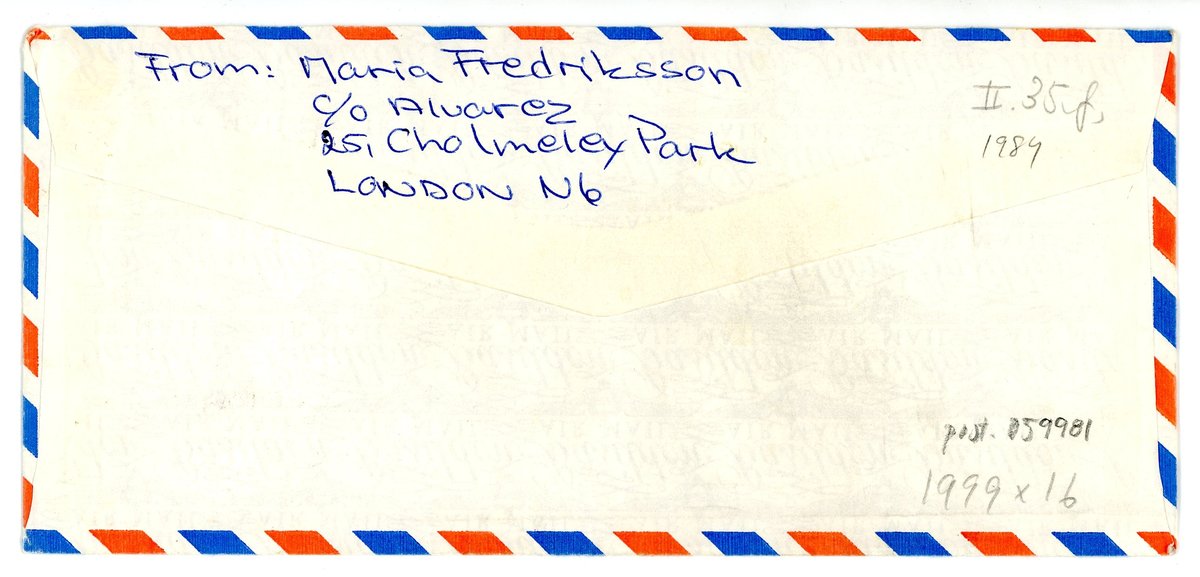 From: Maria Fredriksson
c/o Alvarez
25, Cholmeley Park
LONDON N6
II. 35
1984
post. 059981
1999 x 16